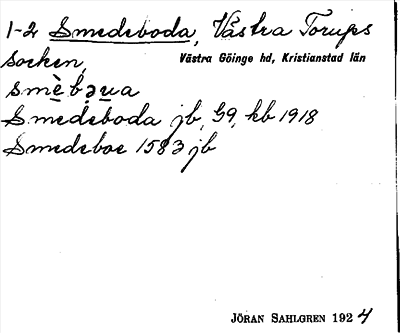 1-2 Smedeboda, Västra Torups
socken, Västra Göinge hd, Kristianstad län
smèbạu̲a
Smedeboda jb, G9, kb 1918
Smedeboe 1583 jb
JÖRAN SAHLGREN 1924